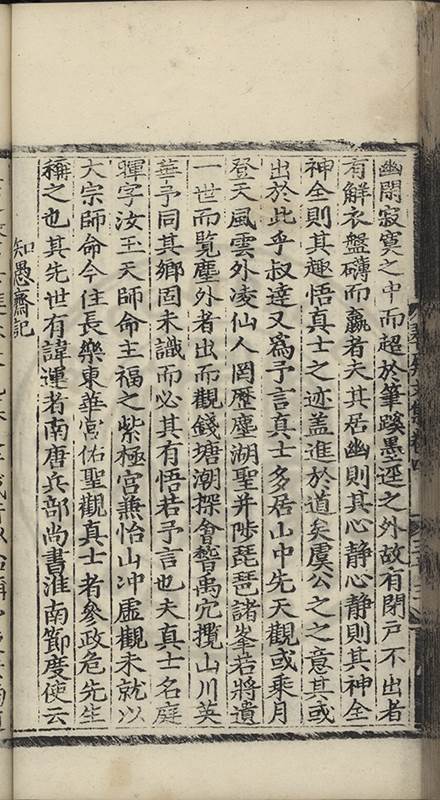 幽閑寂寞之中而超於筆蹊墨逕之外故有閉戶不出者
有解衣盤礴而臝者夫其居幽則其心静心静則其神全
神全則其趣悟真士之迹盖進於道矣虞公之之意其或
出於此乎叔逵又爲予言真士多居山中先天觀或乘月
登天風雲外凌仙人罔歷塵湖聖井陟琵琶諸峯若將遺
一世而覽塵外者出而觀錢塘潮探會嵇禹穴攬山川英
華予同其鄉固未識而必其有悟若予言也夫真士名庭
暉字汝玉天師命主福之紫極宮兼怡山冲虛觀未就以
大宗師命今住長樂東華宮佑聖觀真士者參政危先生
稱之也其先世有諱運者南唐兵部尚書淮南節度使云
知愚齋記